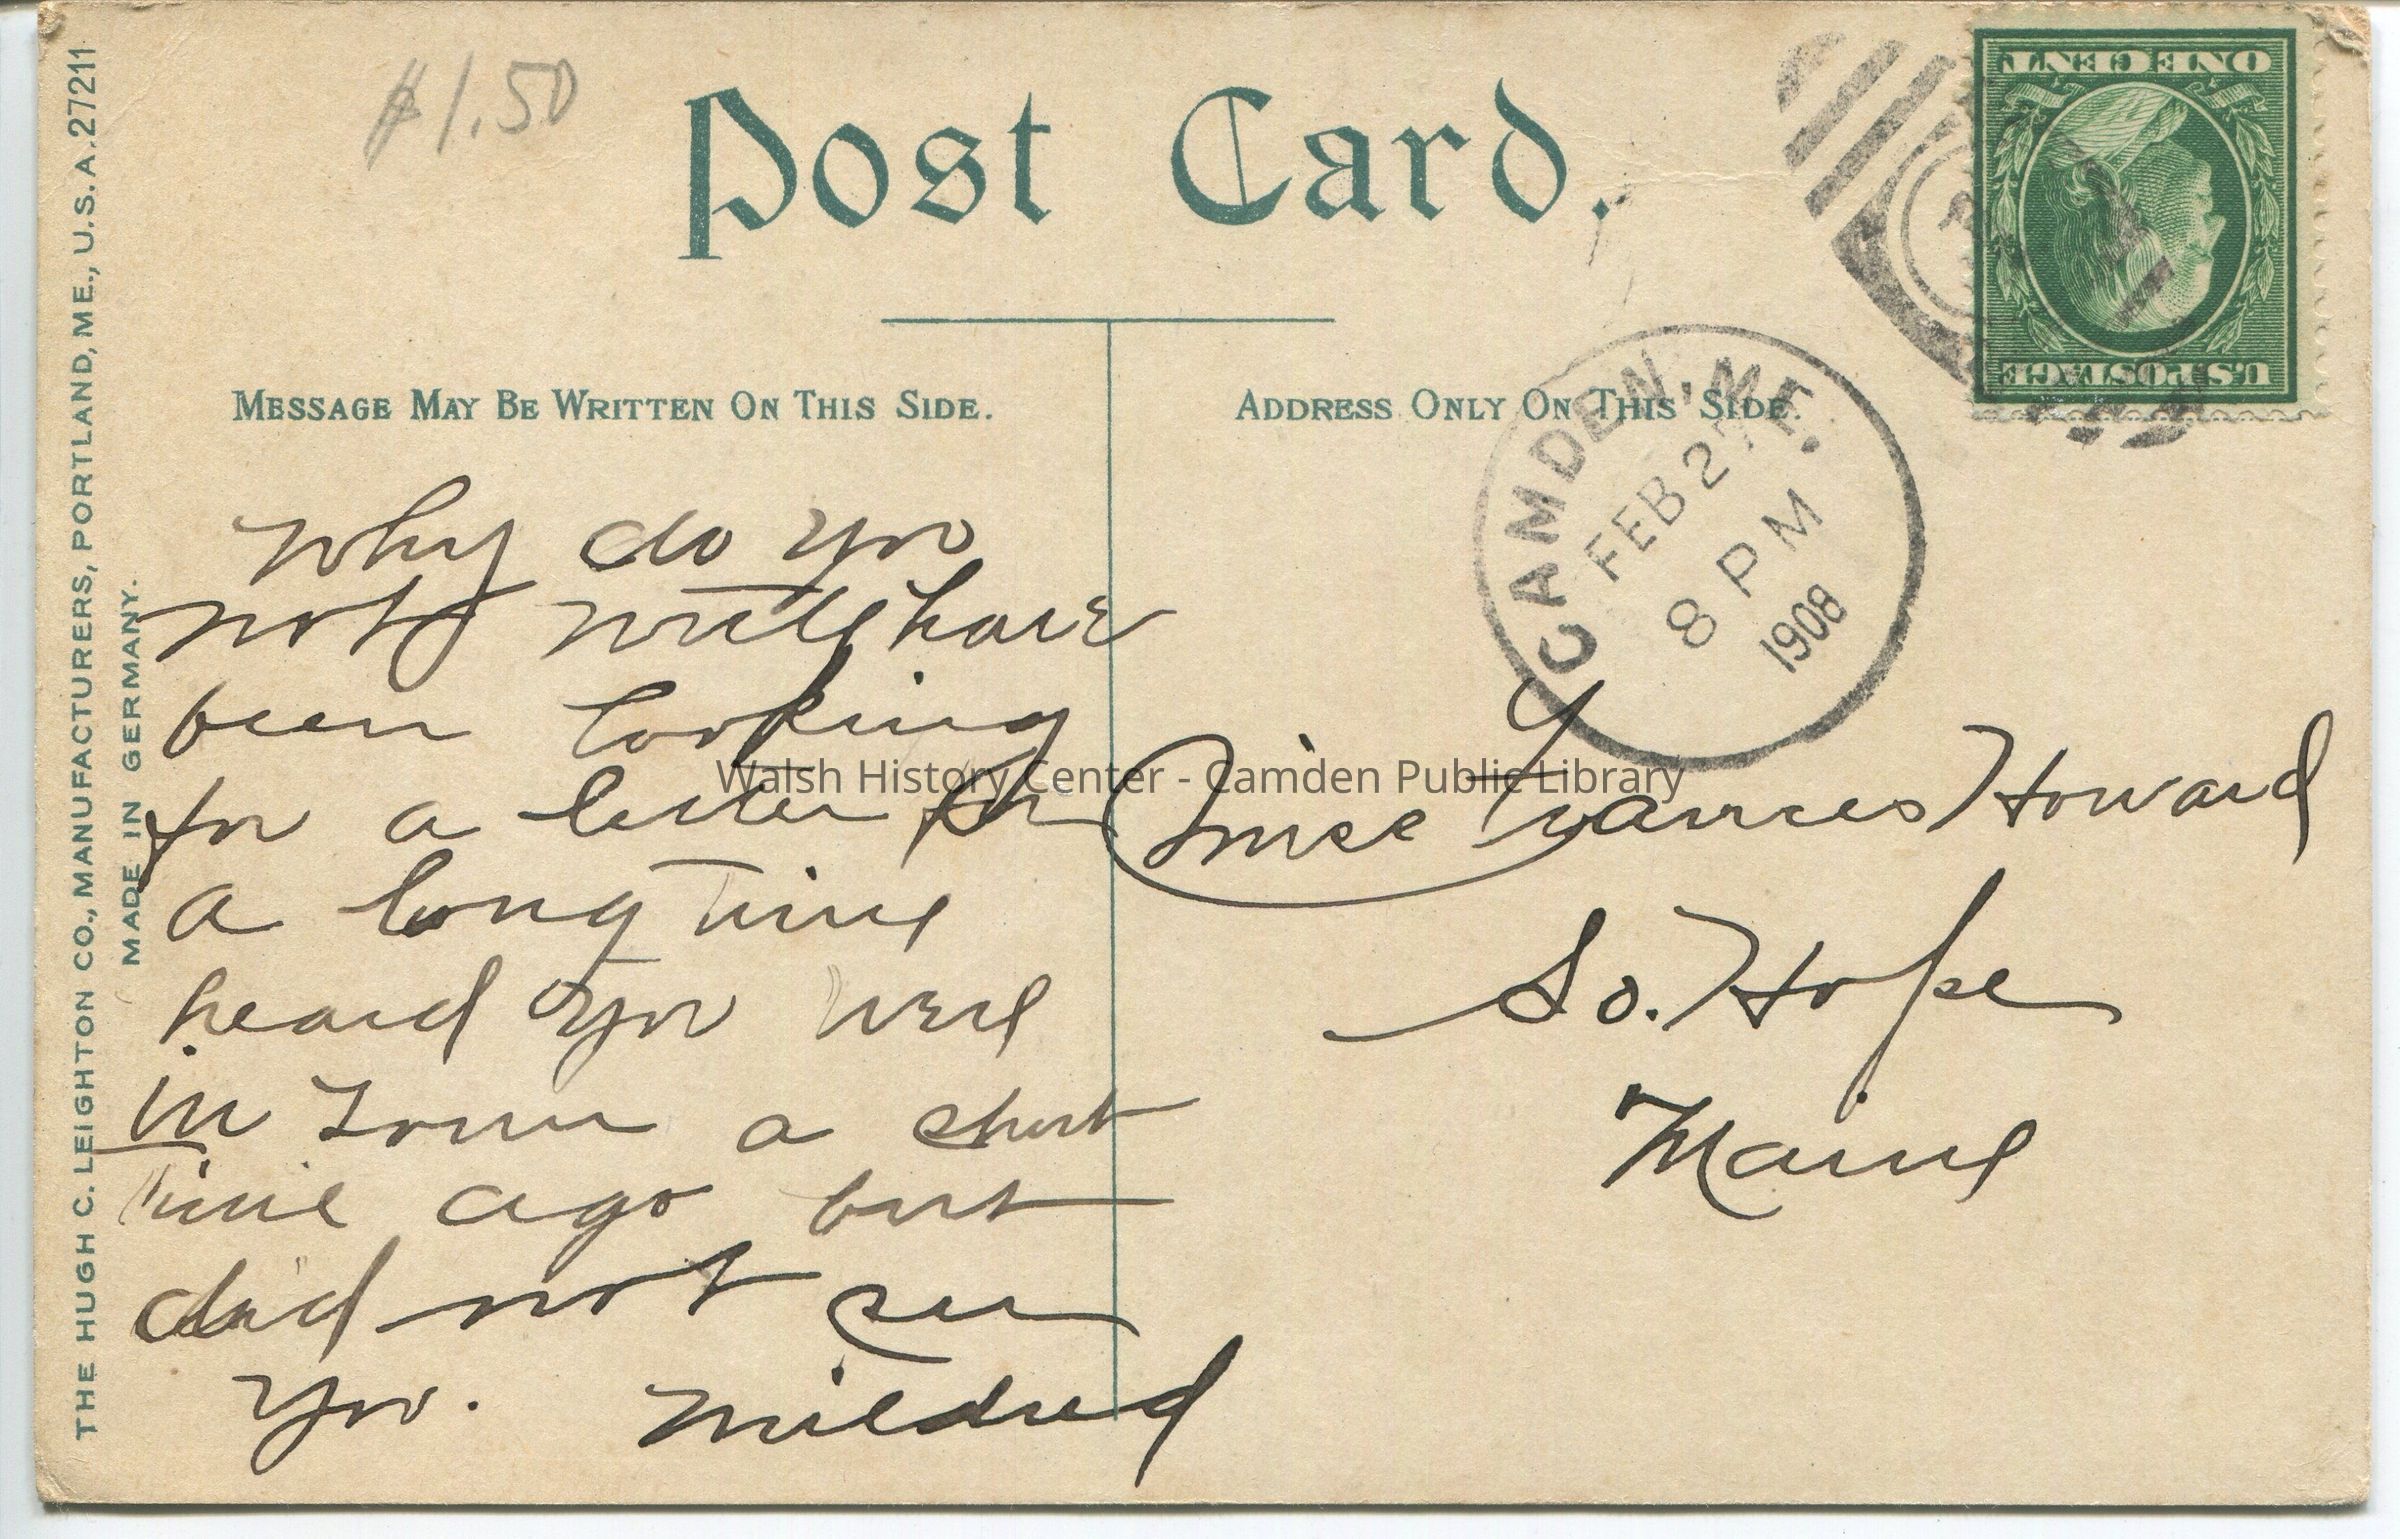 $1.50
Post Card.
ONE CENT
U.S. POSTAGE
MESSAGE MAY BE WRITTEN ON THIS SIDE.
ADDRESS ONLY ON THIS SIDE.
CAMDEN, ME.
FEB 27
8 PM
1908
Why do you
not write have
been looking
for a letter for
a long time
heard you were
in town a short
time ago but
did not see
you. Mildred
Miss Frances Howard
So. Hope
Maine
THE HUGH C. LEIGHTON CO., MANUFACTURERS, PORTLAND, ME., U.S.A. 27211
MADE IN GERMANY.
Walsh History Center - Camden Public Library